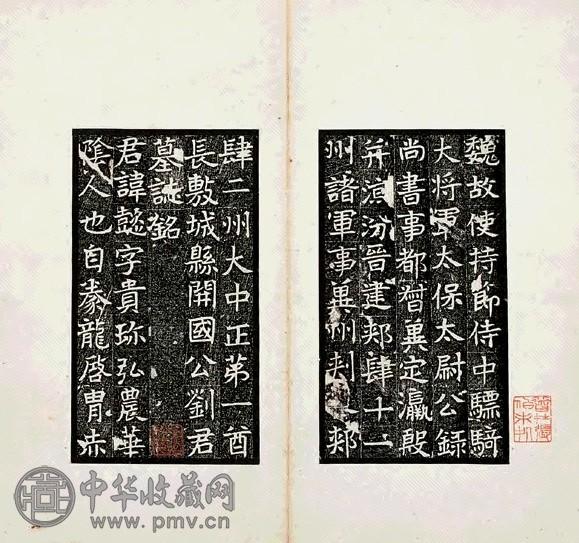 魏故使持節侍中驃騎
大將軍太保太尉公錄
尚書事都督冀定瀛殷
并㳂汾晉建郟肆十一
州諸軍事冀州刺史郟
肆二州大中正第一酋
長敷城縣開國公劉君
墓誌銘
君諱懿字貴珎弘農華
陰人也自豢龍啓胄赤
中华收藏网
www.pmv.cn